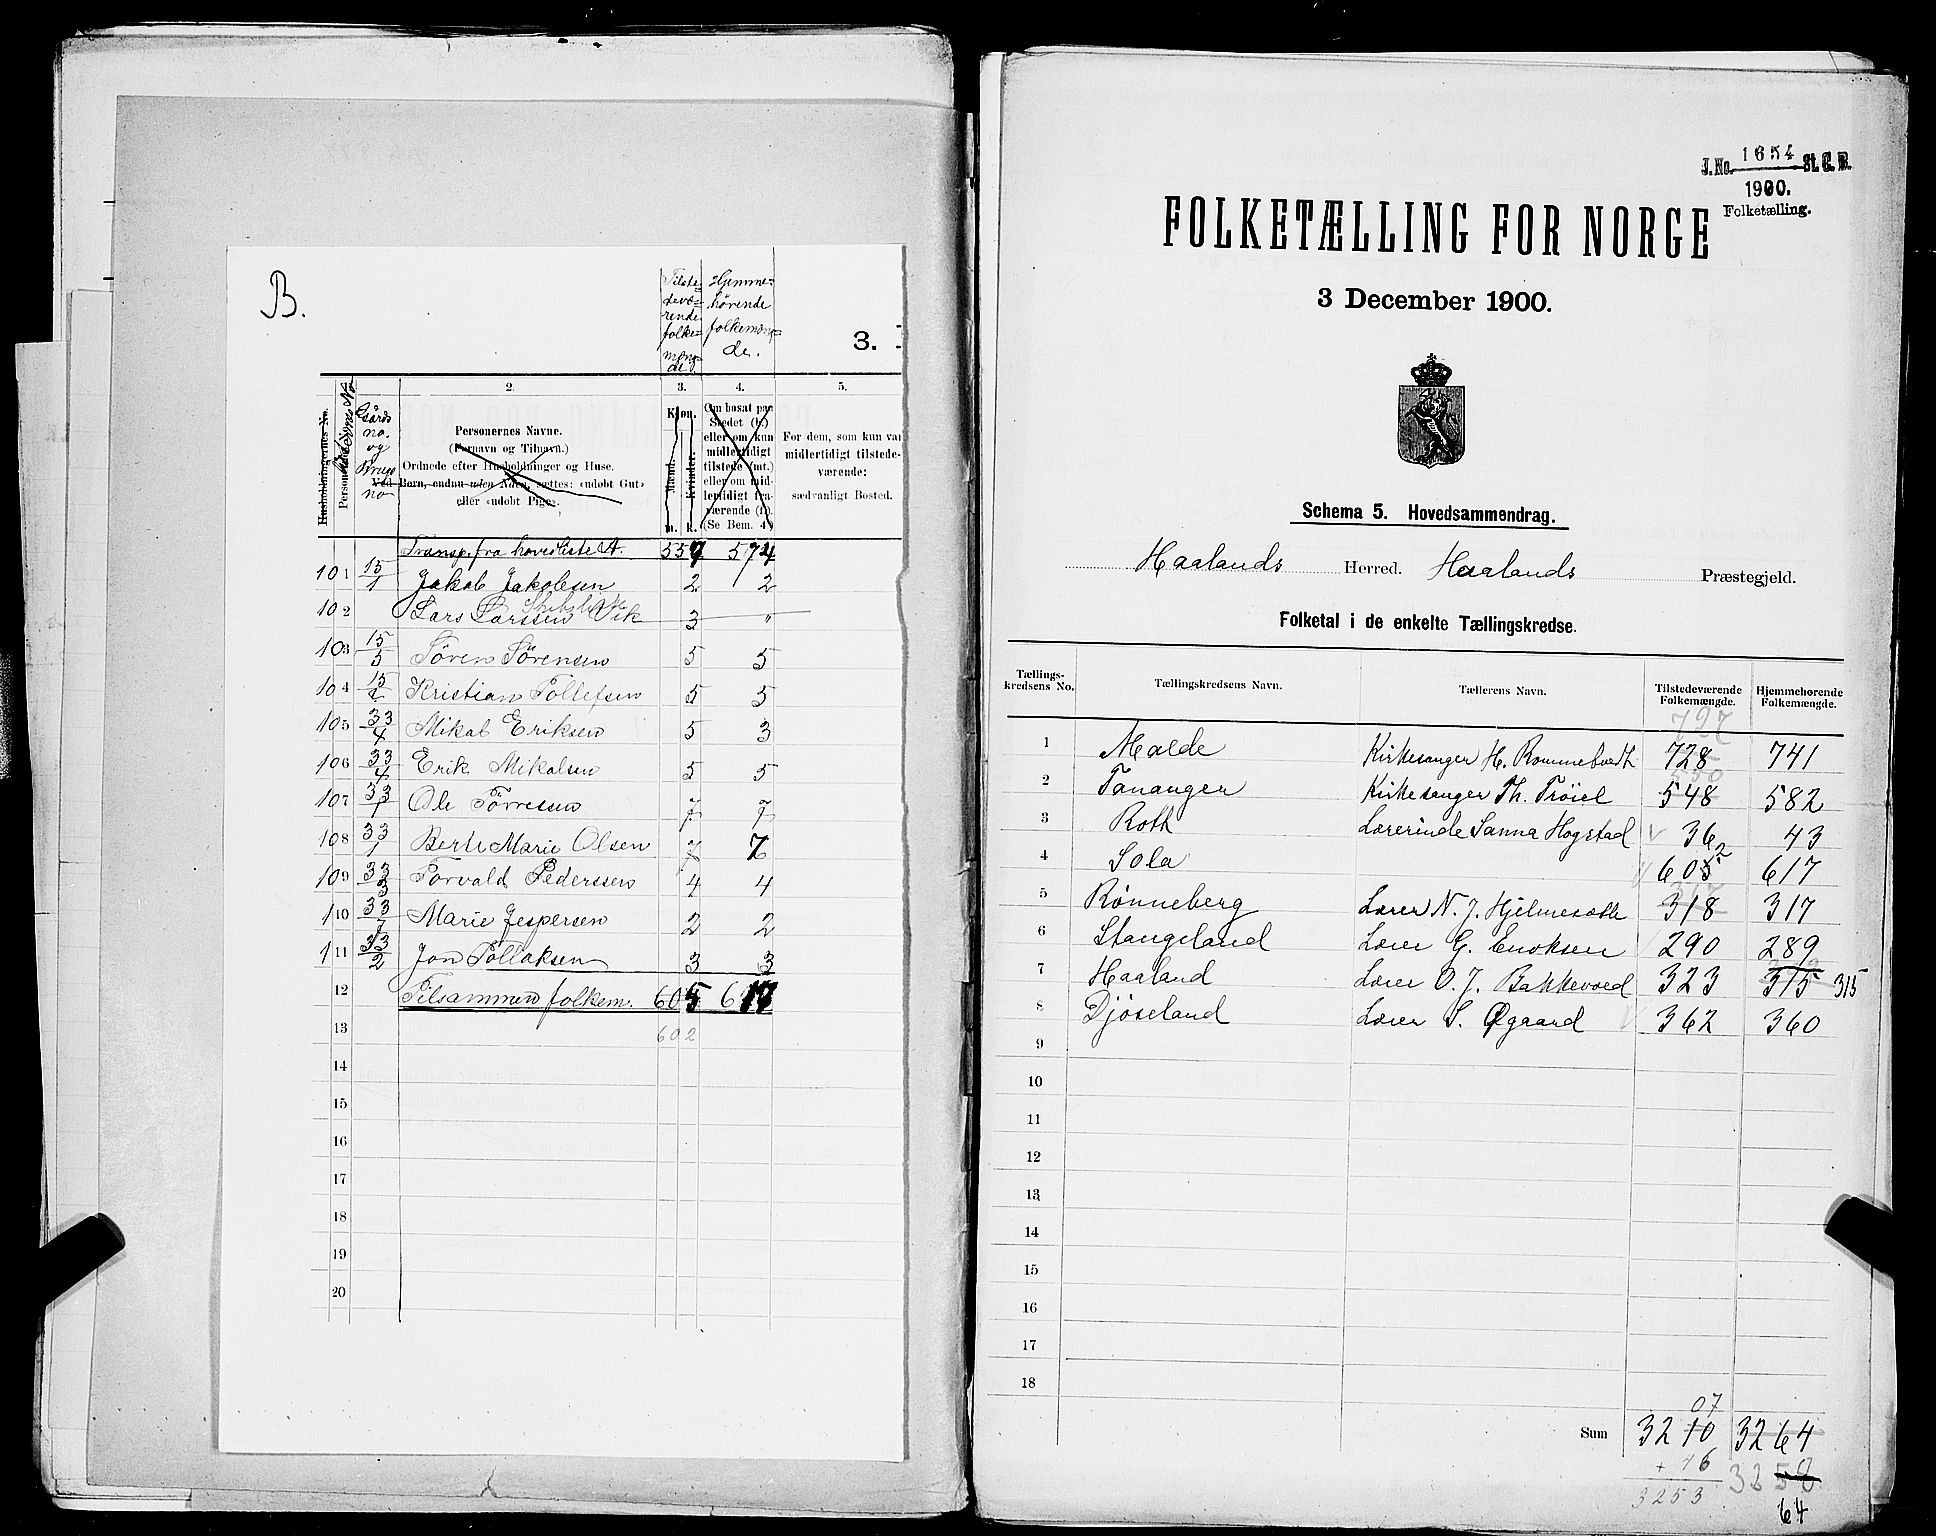 B.
Tilste- devæ- rende folke- mæng- de.
Hjemme- hørende folkemæng- de.
3.
2. 3. 4. 5.
Husholdningernes No.
Gårds no. og Brugs no
Personernes Navne.
(Fornavn og Tilnavn.)
Ordnede efter Husholdninger og Huse.
Ved Børn, endnu uden Navn, sættes: «udøbt Gut» eller «udøbt Pige».
Kjøn.
Mænd. Kvinder.
m. k.
Om bosat paa Stedet (b.) eller om kun midlertidigt tilstede (mt.) eller om midlertidigt fraværende (f.). (Se Bem. 4)
For dem, som kun var midlertidigt tilstedeværende:
sædvanligt Bosted.
Transp. fra hovedliste A. 557 574
101 15/1 Jakob Jakobsen 2 2
102 Lars Larssen Vik 3 "
103 15/5 Søren Sørensen 5 5
104 15/2 Kristian Tollefsen 5 5
105 33/4 Mikal Eriksen 5 3
106 33/4 Erik Mikalsen 5 5
107 33/1 Ole Tørresen 7 7
108 33/1 Berte Marie Olsen 7 7
109 33/3 Torvald Pederssen 4 4
110 33/1 Marie Jespersen 2 2
111 33/2 Jon Tollaksen 3 3
12 Tilsammen folkem. 605 617
13 602
14
15
16
17
18
19
20
J. No. 1654 St. C. B.
1900.
Folketælling.
FOLKETÆLLING FOR NORGE
3 December 1900.
Schema 5. Hovedsammendrag.
Haalands Herred. Haalands Præstegjeld.
Folketal i de enkelte Tællingskredse.
Tællings- kredsens No. Tællingskredsens Navn. Tællerens Navn. Tilstedeværende Folkemængde. Hjemmehørende Folkemængde.
727
1 Malde Kirkesanger H. Rommetvedt 728 741
550
2 Tananger Kirkesanger Th. Trøiel 548 582
3 Roth Lærerinde Sanna Hogstad 36 43
2
4 Sola 605 617
317
5 Rønneberg Lærer N. J. Hjelmesæth 318 317
6 Stangeland Lærer G. Enoksen 290 289
7 Haaland Lærer O. J. Bakkevold 323 315 315
8 Djøseland Lærer S. Øgaard 362 360
9
10
11
12
13
14
15
16
17
18
07
Sum 3210 3264
+ 46 3258
3253 64